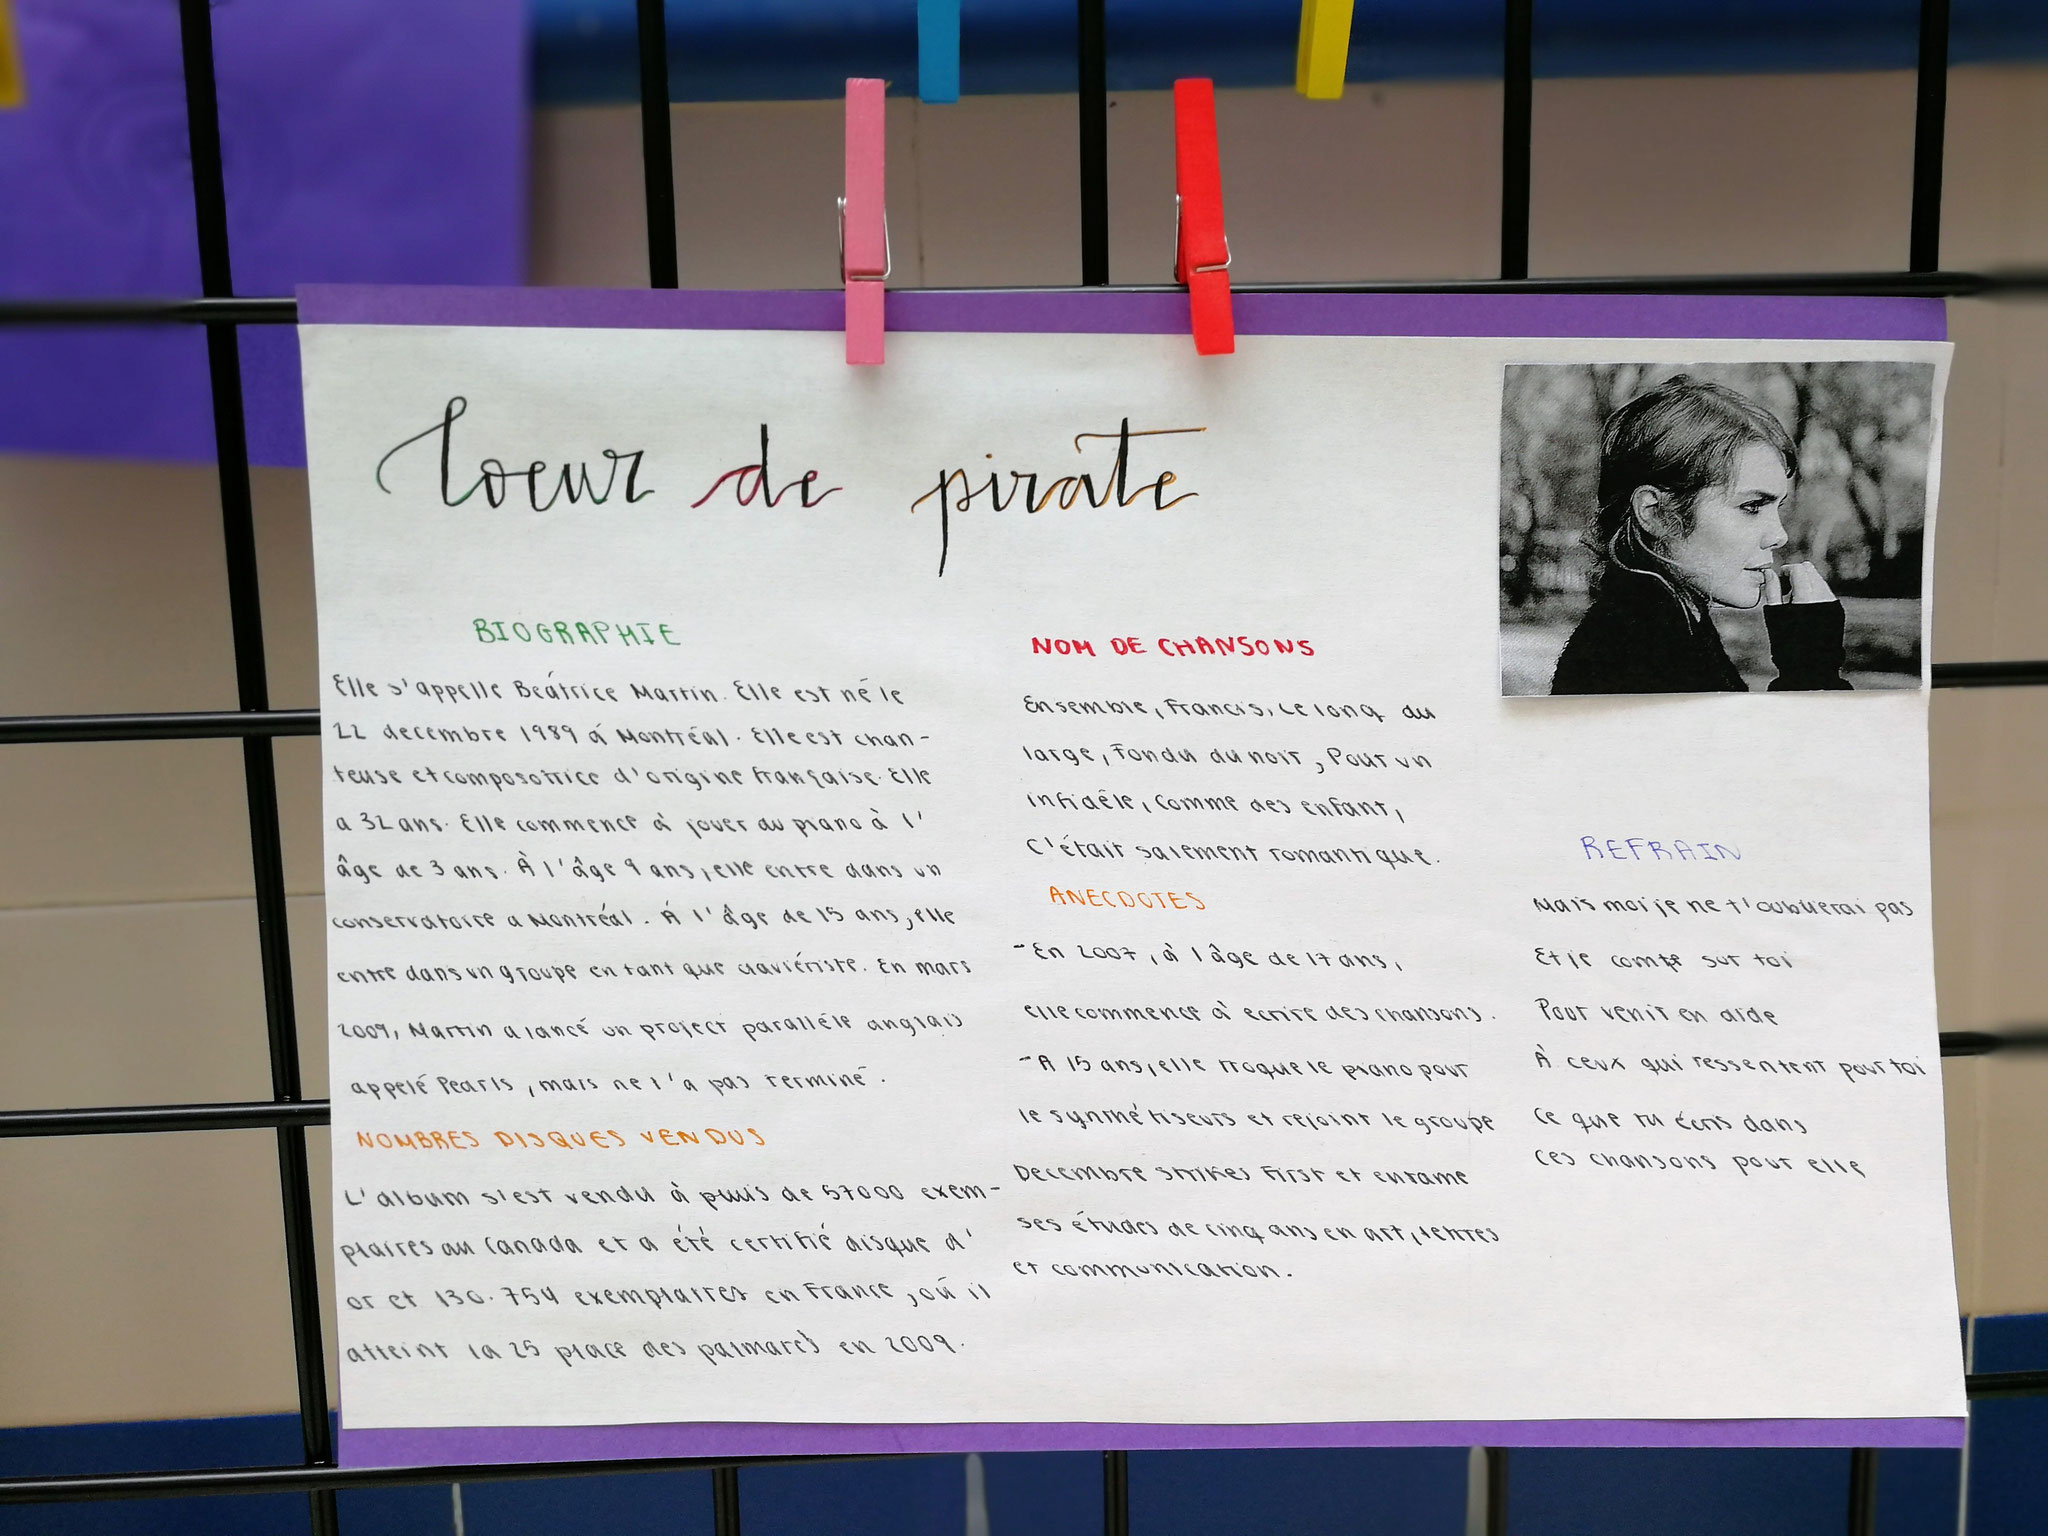 Coeur de pirate
BIOGRAPHIE
Elle s'appelle Beátrice Martin. Elle est né le
22 decembre 1989 á Montréal. Elle est chan-
teuse et composotrice d'origine française. Elle
a 32 ans. Elle commence à jouer au piano à l'
âge de 3 ans. À l'âge 9 ans, elle entre dans un
conservatoire a Montréal. Á l'âge de 15 ans, elle
entre dans un groupe en tant que claviériste. En mars
2009, Martin a lancé un project paralléle anglais
appelé Pearls, mais ne l'a pas terminé.
NOMBRES DISQUES VENDUS
L'album s'est vendu à puis de 57000 exem-
plaires au Canada et a été certifié disque d'
or et 130.754 exemplaires en France, oú il
atteint la 25 place des palmarès en 2009.
NOM DE CHANSONS
Ensemble, Francis, Le long du
large, Fondu du noir, Pour un
infidèle, Comme des enfant,
C'était salement romantique.
ANECDOTES
-En 2007, à l'âge de 17 ans,
elle commence à ecrire des chansons.
-A 15 ans, elle troque le piano pour
le synthétiseurs et rejoint le groupe
Decembre Strikes First et entame
ses études de cinq ans en art, lettres
et communication.
REFRAIN
Mais moi je ne t'oublierai pas
Et je compte sur toi
Pour venir en aide
À ceux qui ressentent pour toi
Ce que tu écris dans
Ces chansons pour elle